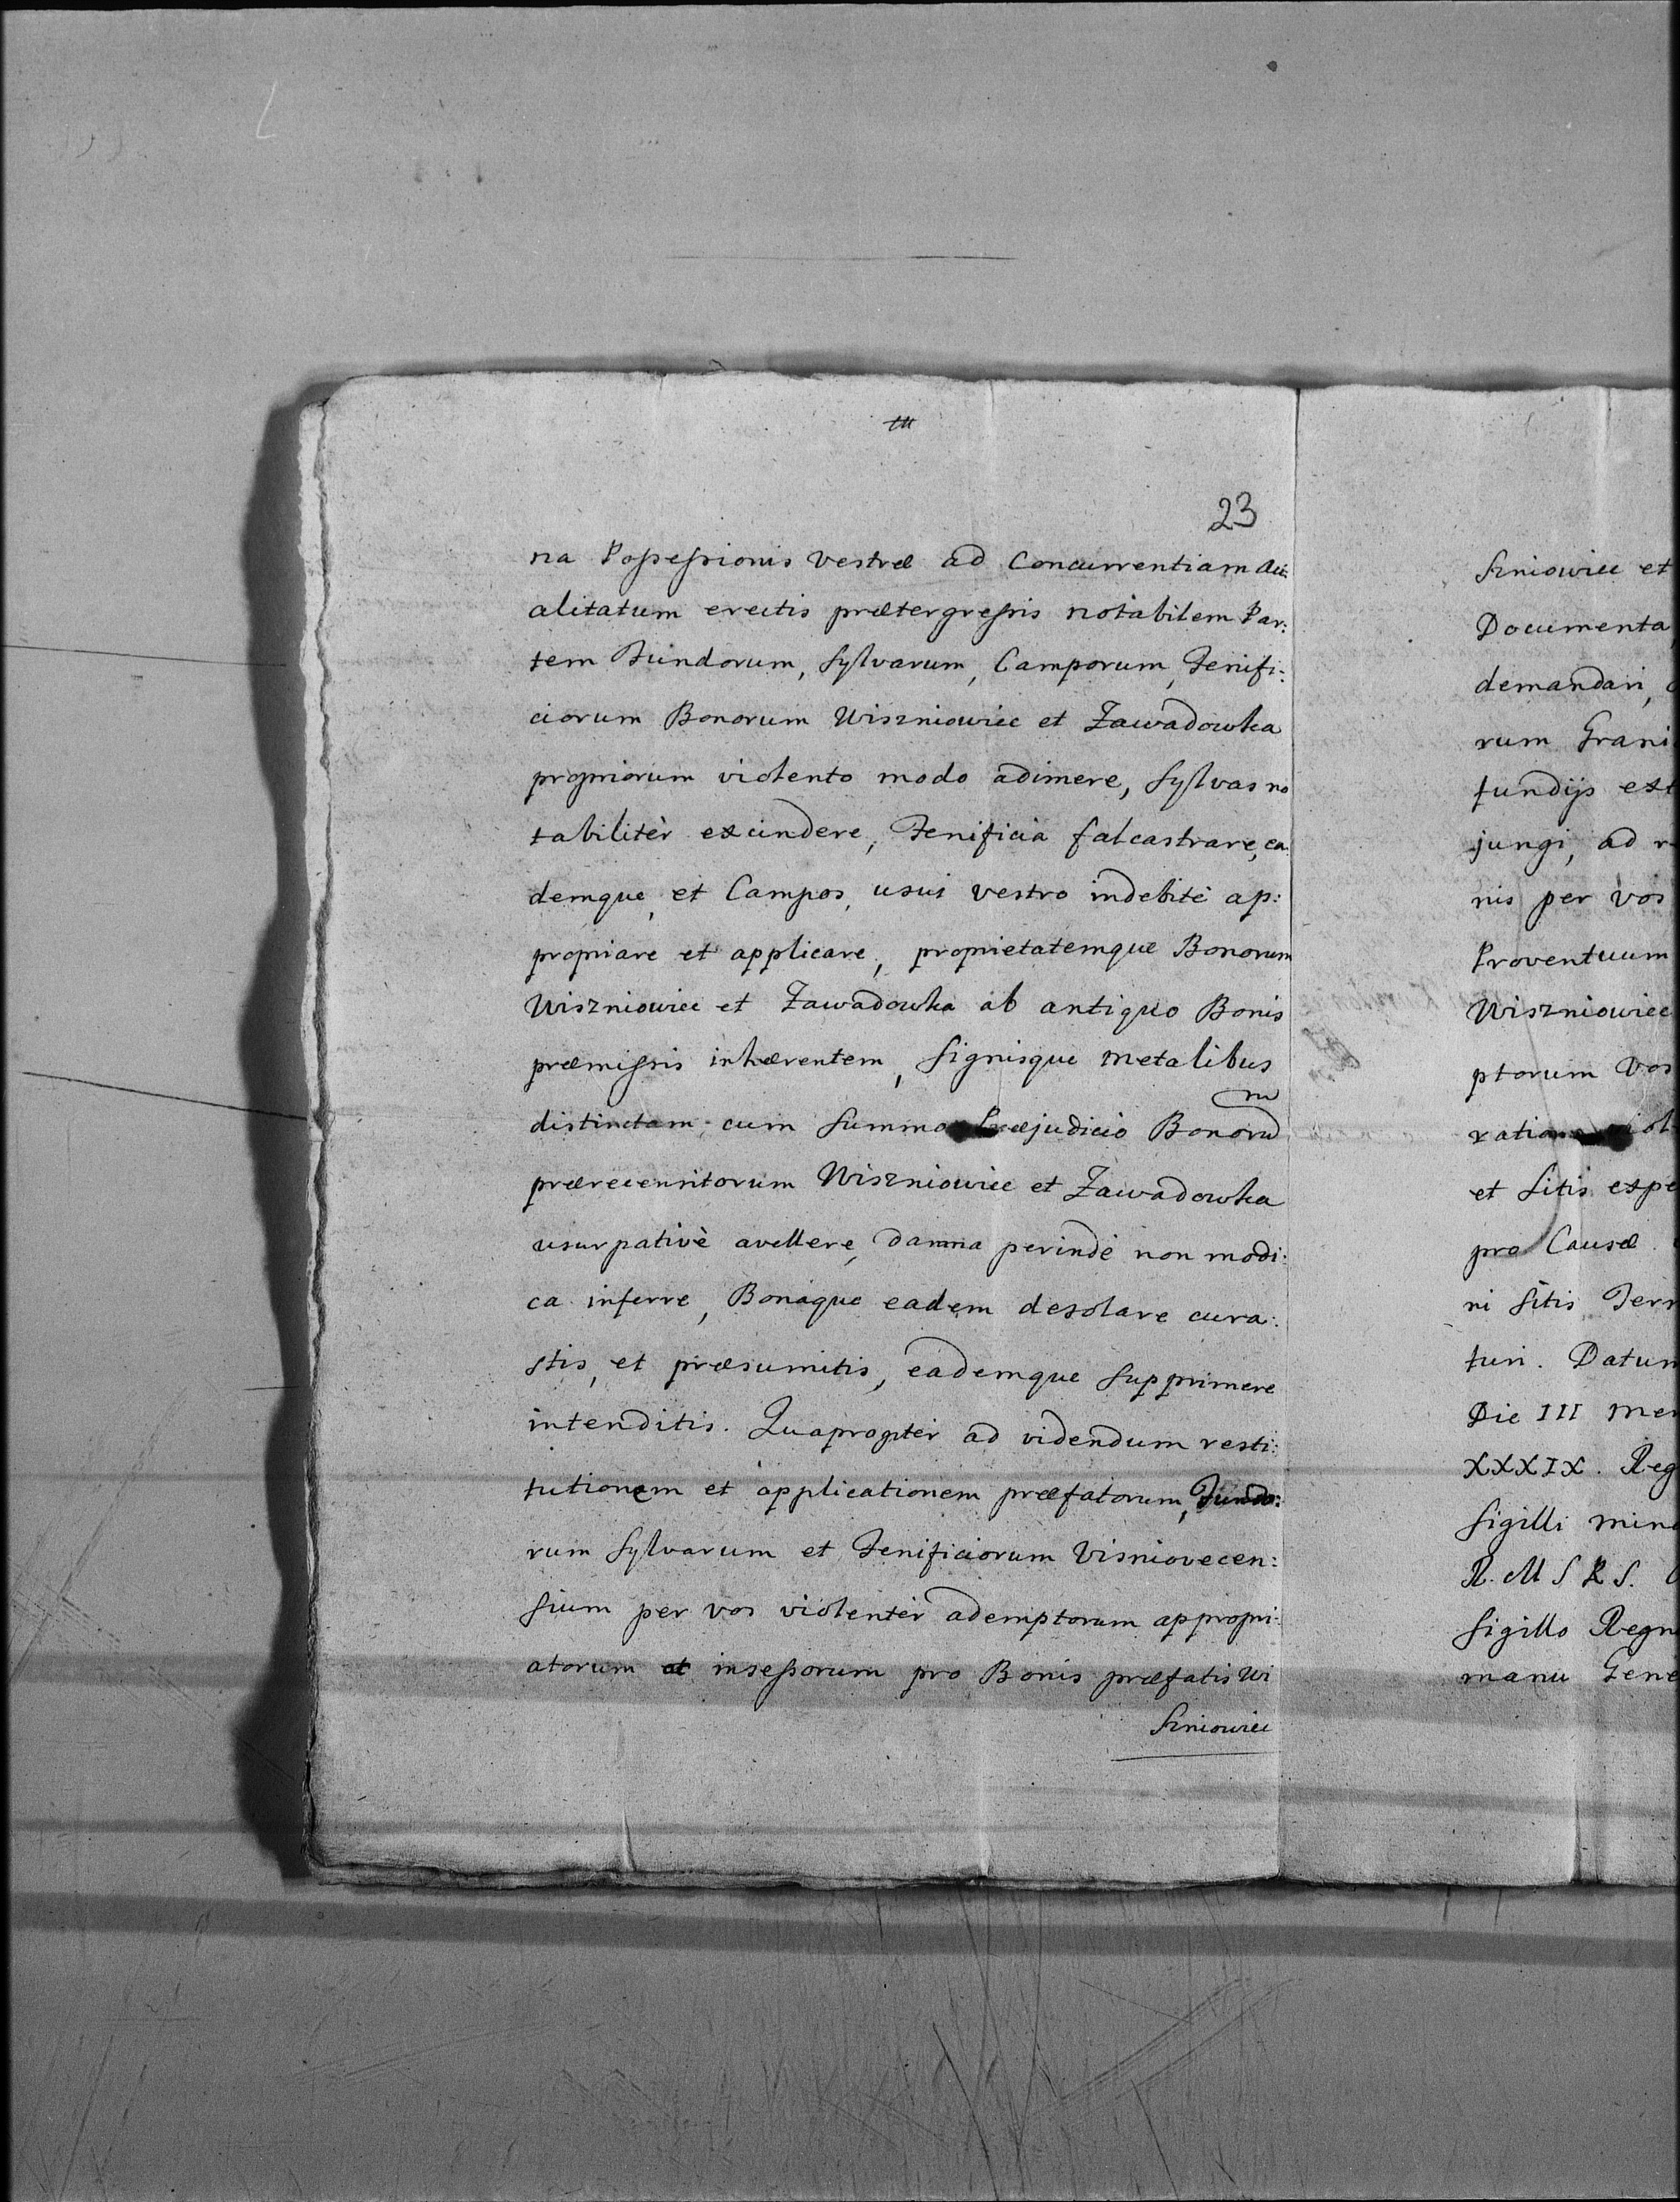 23
na Possessionis vestræ ad Concurrentiam du:
alitatum erectis prætergressis notabilem Par:
tem Fundorum, Sylvarum, Camporum, Fenifi:
ciorum Bonorum Wiszniowiec et Zawadowka
propriorum violento modo adimere, Sylvas no
tabilitèr excindere, Fenificia falcastrare, ea:
demque, et Campos, usui vestro indebitè ap:
propriare et applicare, proprietatemque Bonorum
Wiszniowiec et Zawadowka ab antiquo Bonis
præmissis inhærentem, Signisque metalibus
distinctam cum Summo Præjudicio Bonorum
prærecensitorum Wiszniowiec et Zawadowka
usurpativè avellere, damna perinde non modi:
ca inferre, Bonaque eadem desolare cura:
stis, et præsumitis, eademque Supprimere
intenditis. Quapropter ad videndum resti:
tutionem et applicationem præfatorum, Fundo:
rum Sylvarum et Fenificiorum Visniovecen:
sium per vos violentèr ademptorum appropri:
atorum et insessorum pro Bonis præfatis Wi
szniowiec
szniowiec et
Documenta
demandari,
rum Grani
fundijs ext
jungi, ad r
nis per vos
Proventuum
Wiszniowiec
ptorum vos
ration viol
et Sitis expe
pro Causæ
ni Sitis, Ter
turi. Datum
Die III Men
XXXIX. Reg
Sigilli mino
R. M S R S.
Sigillo Regn
manu Gene